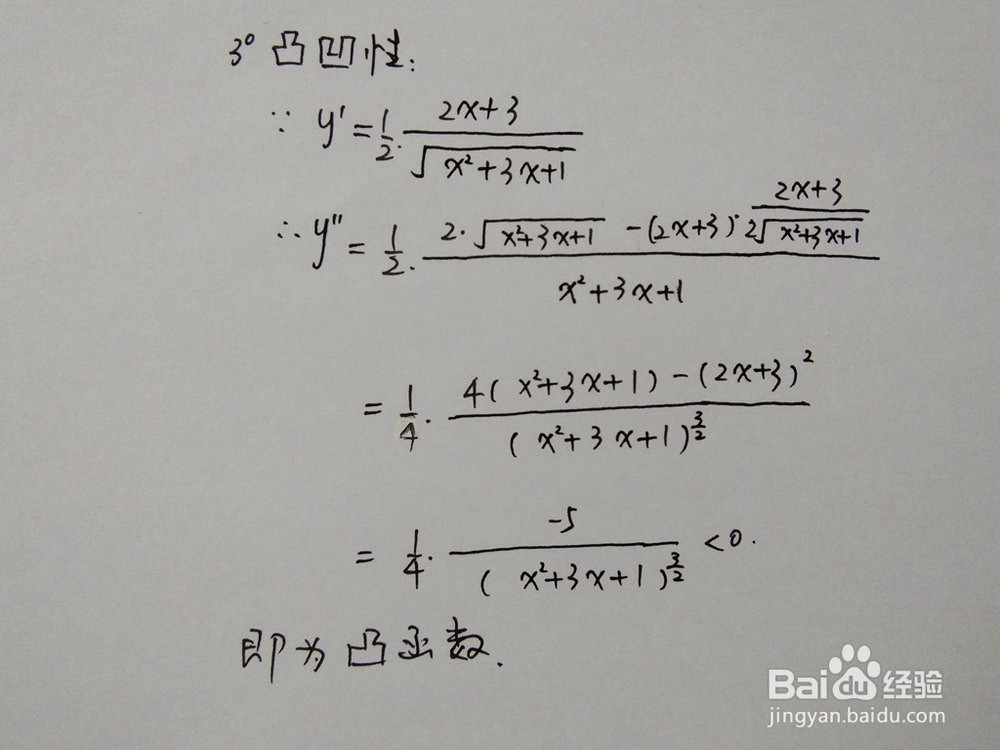 3° 凸凹性:
∵ y' = 1/2 · (2x+3)/√(x²+3x+1)
∴ y'' = 1/2 · (2·√(x²+3x+1) - (2x+3)·(2x+3)/(2√(x²+3x+1)))/(x²+3x+1)
= 1/4 · (4(x²+3x+1) - (2x+3)²)/(x²+3x+1)^(3/2)
= 1/4 · (-5)/(x²+3x+1)^(3/2) < 0.
即为凸函数.
Baidu经验
jingyan.baidu.com